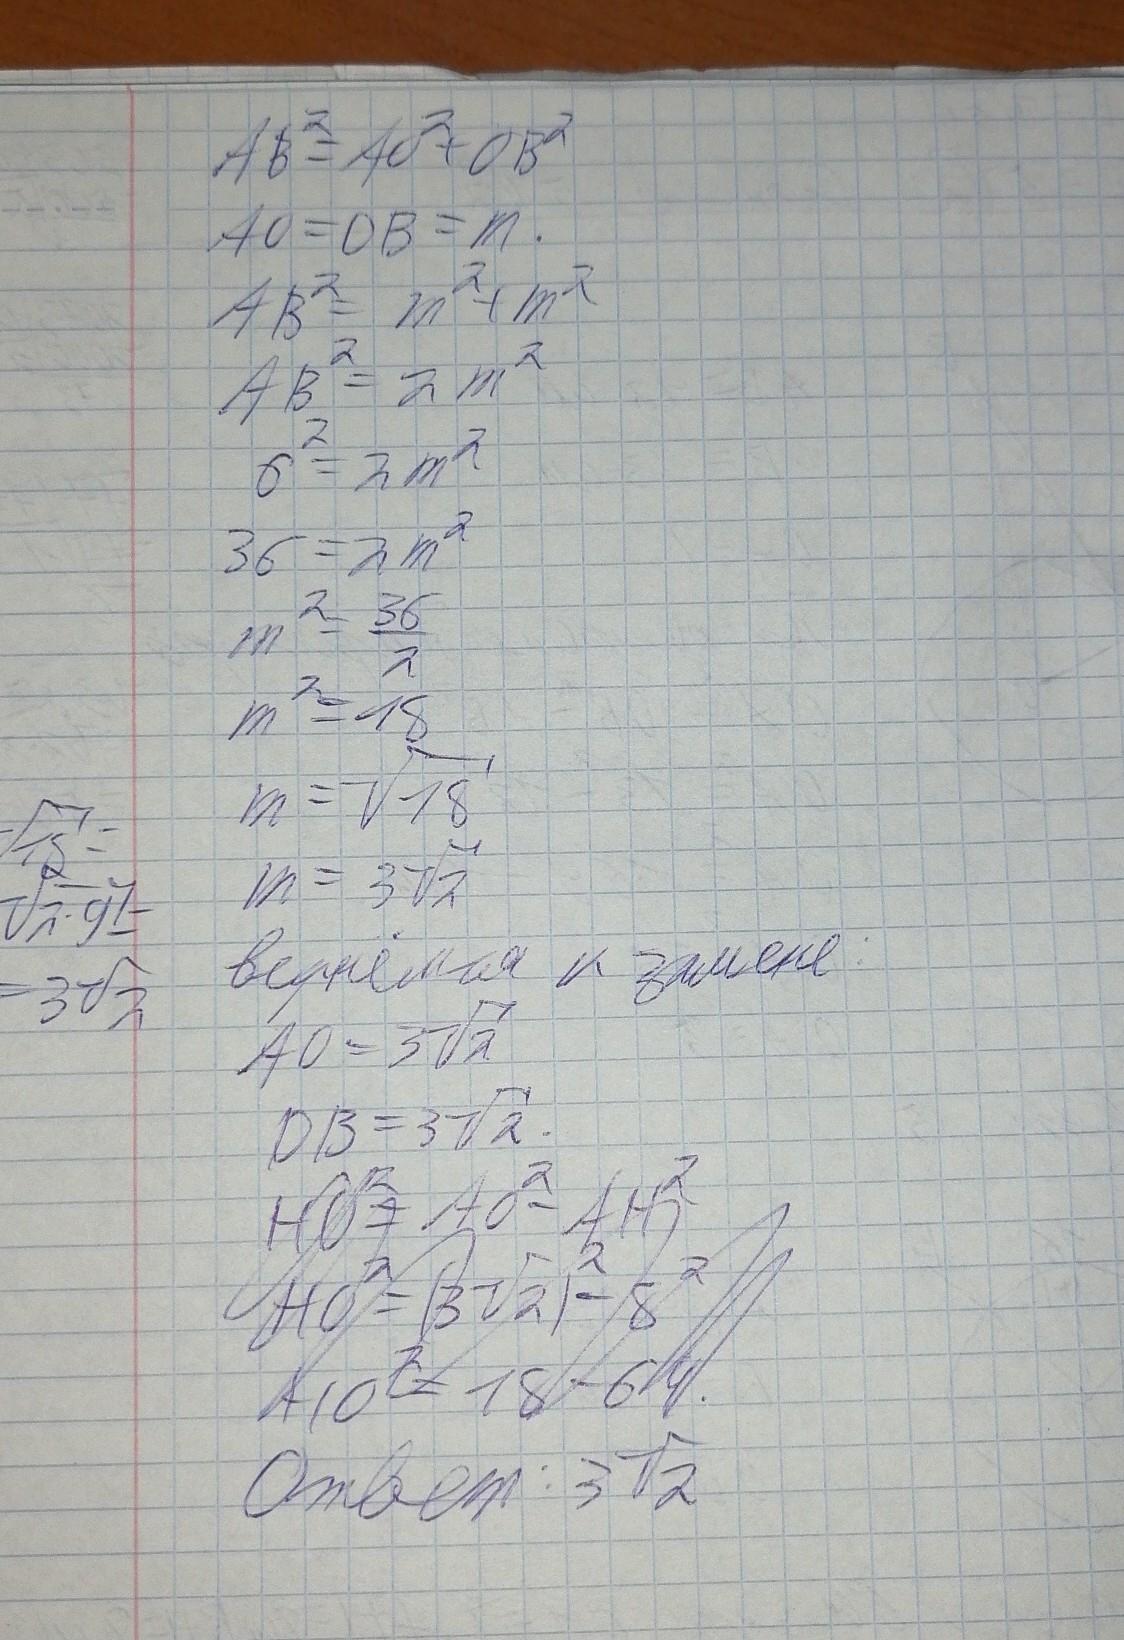 AB²=AO²+OB²
AO=OB=m.
AB²= m²+m²
AB²= 2m²
6²=2m²
36=2m²
m²=36/2
m²=18
m=√18
m=3√2
√18=
√2·9=
=3√2
вернёмся к замене:
AO=3√2
OB=3√2.
HO²=AO²-AH²
HO²=(3√2)²-8²
HO²=18-64.
Ответ: 3√2